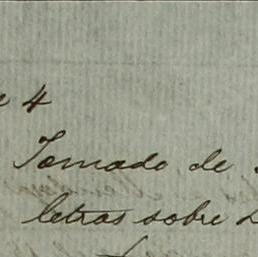 4
Tomado de
letras sobre